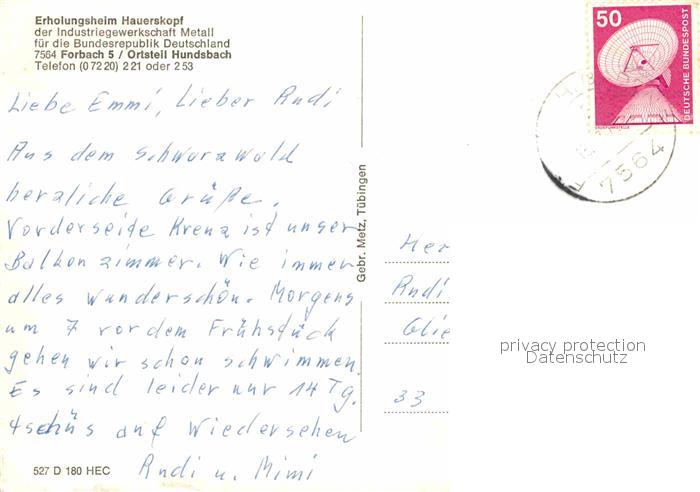 Erholungsheim Hauerskopf
der Industriegewerkschaft Metall
für die Bundesrepublik Deutschland
7564 Forbach 5 / Ortsteil Hundsbach
Telefon (0 72 20) 2 21 oder 2 53
Liebe Emmi, Lieber Rudi
Aus dem Schwarzwald
herzliche Grüße.
Vorderseite Kreuz ist unser
Balkonzimmer. Wie immer
alles wunderschön. Morgens
um 7 vor dem Frühstück
gehen wir schon schwimmen.
Es sind leider nur 14 Tg.
tschüs auf Wiedersehen
Rudi u. Mimi
527 D 180 HEC
Gebr. Metz, Tübingen
50
DEUTSCHE BUNDESPOST
ERDEFUNKSTELLE
7564
Her
Rudi
Olie
33
privacy protection
Datenschutz